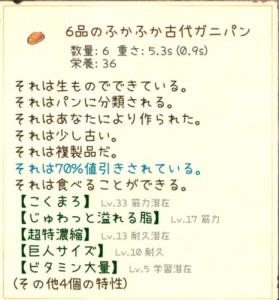 6品のふかふか古代ガニパン
数量: 6 重さ: 5.3s (0.9s)
栄養: 36
それは生ものでできている。
それはパンに分類される。
それはあなたにより作られた。
それは少し古い。
それは複製品だ。
それは70%値引きされている。
それは食べることができる。
【こくまろ】 Lv.33 筋力潜在
【じゅわっと溢れる脂】 Lv.17 筋力
【超特濃縮】 Lv.13 耐久潜在
【巨人サイズ】 Lv.10 耐久
【ビタミン大量】 Lv.5 学習潜在
(その他4個の特性)